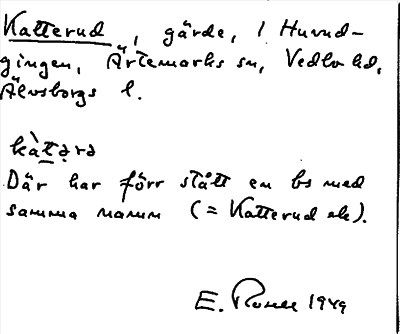 Katterud, gärde, i Huvud-
gingen, Ärtemarks sn, Vedbo hd,
Älvsborgs l.
kàt̠ərə
Där har förr stått en bs med
samma namn (= Katterud ek).
E. 1949